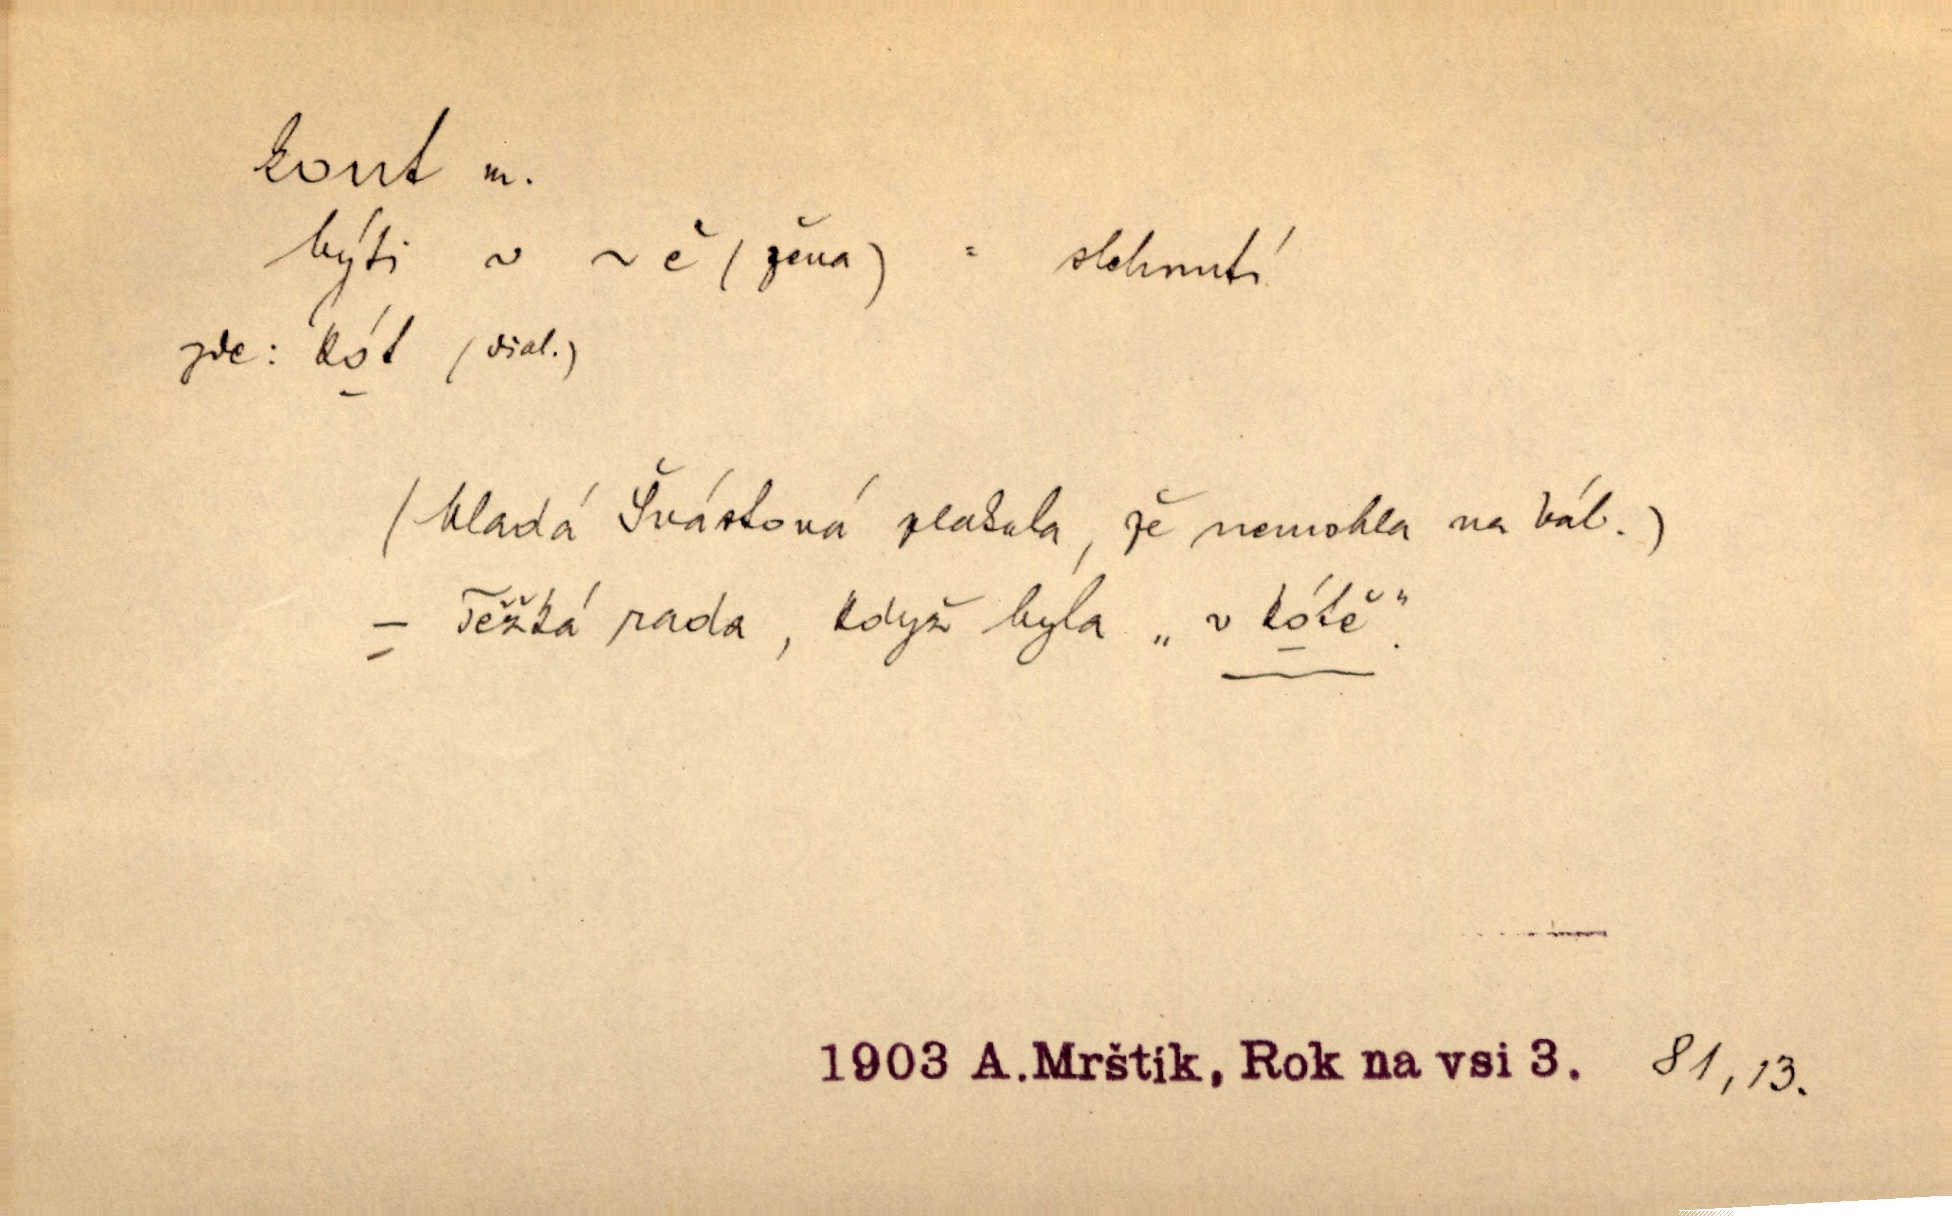 kout m.
býti v ~ě (žena) = slehnutí
zde: kót (dial.)
(Mladá Švástová plakala, že nemohla na bál.)
– Těžká rada, když byla „v kótě".
1903 A.Mrštík, Rok na vsi 3. 81, 13.